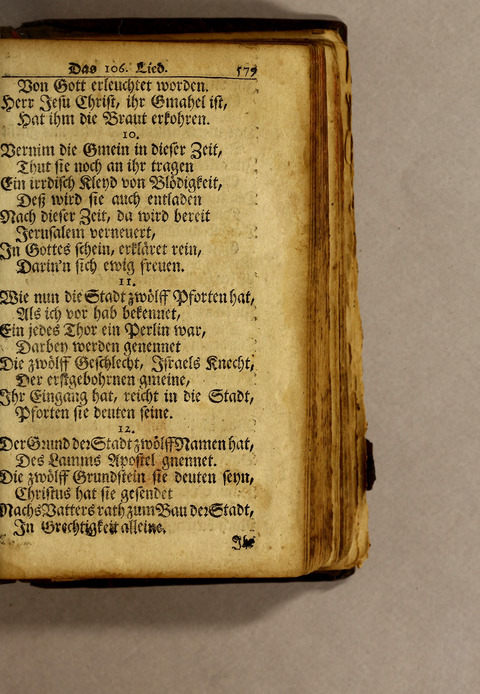 Das 106. Lied. 579
Von Gott erleuchtet worden.
Herr Jesu Christ, ihr Gmahel ist,
Hat ihm die Braut erkohren.
10.
Vernim die Gmein in dieser Zeit,
Thut sie noch an ihr tragen
Ein irrdisch Kleyd von Blödigkeit,
Deß wird sie auch entladen
Nach dieser Zeit, da wird bereit
Jerusalem verneuert,
In Gottes schein, erkläret rein,
Darin'n sich ewig freuen.
11.
Wie nun die Stadt zwölff Pforten hat,
Als ich vor hab bekennet,
Ein jedes Thor ein Perlin war,
Darbey werden genennet
Die zwölff Geschlecht, Israels Knecht,
Der erstgebohrnen gmeine,
Ihr Eingang hat, reicht in die Stadt,
Pforten sie deuten seine.
12.
Der Grund der Stadt zwölff Namen hat,
Des Lamms Apostel gnennet.
Die zwölff Grundstein sie deuten seyn,
Christus hat sie gesendet
Nachs Vatters rath zum Bau der Stadt,
In Grechtigkeit alleine.
Ihr